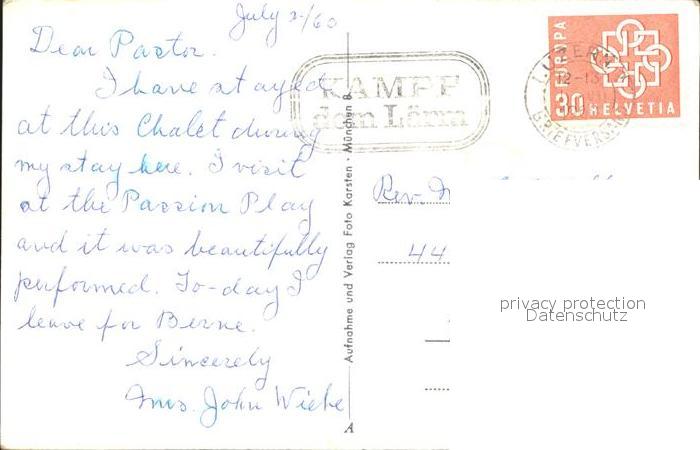 July 2-/60
Dear Pastor.
I have stayed
at this Chalet during
my stay here. I visit
at the Passion Play
and it was beautifully
performed. To-day I
leave for Berne.
Sincerely
Mrs. John Wiebe
KAMPF
dem Lärm
Aufnahme und Verlag Foto Karsten · München 8
A
EUROPA
30 HELVETIA
LUZERN
12-13
BRIEFVERSAND
Rev.
44
privacy protection
Datenschutz